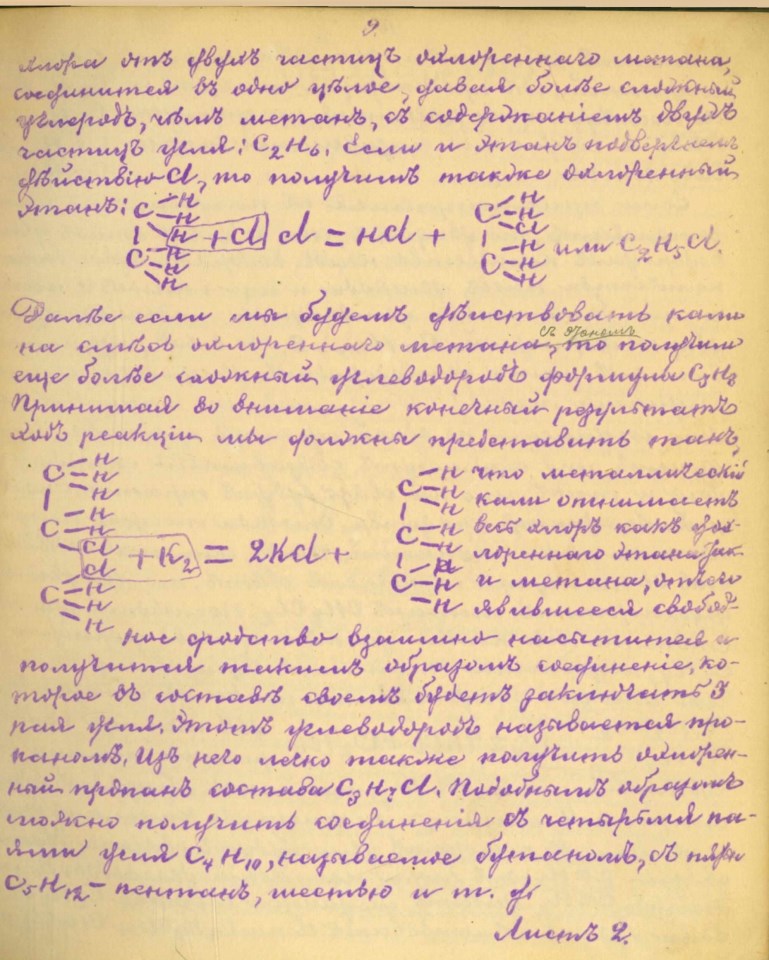 9.
хлора отъ двухъ частицъ охлореннаго метана,
соединится въ одно цѣлое, давая болѣе сложный
углеродъ, чѣмъ метанъ, съ содержаніемъ двухъ
частицъ угля: C₂H₆. Если и этанъ подвергнемъ
дѣйствію Cl, то получимъ также охлоренный
этанъ:
C H H H + Cl Cl = HCl + C H H Cl или C₂H₅Cl.
C H H H C H H H
Далѣе если мы будемъ дѣйствовать калі
на смѣсь охлореннаго метана, то получимъ
съ этаномъ
еще болѣе сложный углеводородъ формулы C₃H₈
Принимая во вниманіе конечный результатъ
ходъ реакціи мы должны представить такъ,
C H H H C H H что металлическій
C H H калі отнимаетъ
Cl + K₂ = 2KCl + C H H весь хлоръ какъ
лореннаго этана
Cl C H H H C H H H и метана, отчего
явившееся свобод-
ное сродство взаимно насытится и
получится такимъ образомъ соединеніе, ко-
торое въ составѣ своемъ будетъ заключать 3
пая угля. Этотъ углеводородъ называется про-
паномъ. Изъ него легко также получить охлорен-
ный пропанъ состава C₃H₇Cl. Подобнымъ образомъ
можно получить соединенія съ четырьмя па-
ями угля C₄H₁₀, называемое бутаномъ, съ пятью
C₅H₁₂ - пентанъ, шестью и т. д.
Листъ 2.